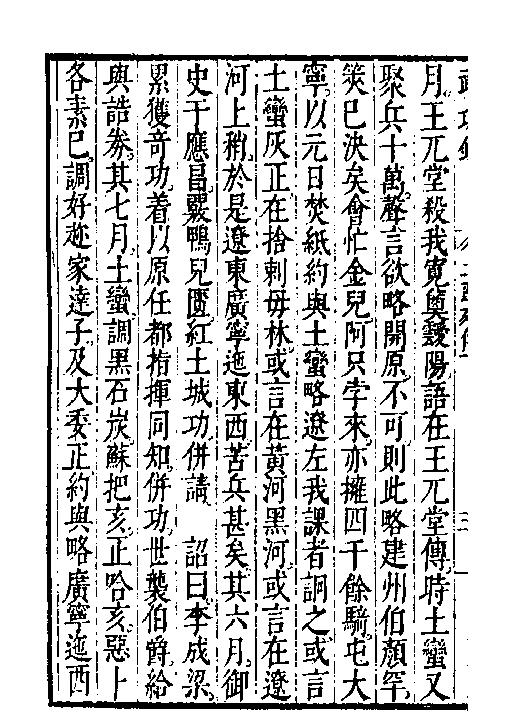 月王兀堂殺我寬奠靉陽語在王兀堂傳時土蠻又
聚兵十萬聲言欲略開原不可則此略建州伯顏罕
筴已決矣會忙金兒阿只孛來亦擁四千餘騎屯大
寧以元日焚紙約與土蠻略遼左我課者詗之或言
土蠻灰正在捨剌毋林或言在黃河黑河或言在遼
河上稍於是遼東廣寧迤東西苦兵甚矣其六月御
史于應昌覈鴨兒匱紅土城功併請 詔曰李成梁
累獲奇功着以原任都指揮同知併功世襲伯爵給
與誥券其七月土蠻調黑石炭蘇把亥止哈亥惡卜
各素巳調好趂家達子及大委正約與略廣寧迤西